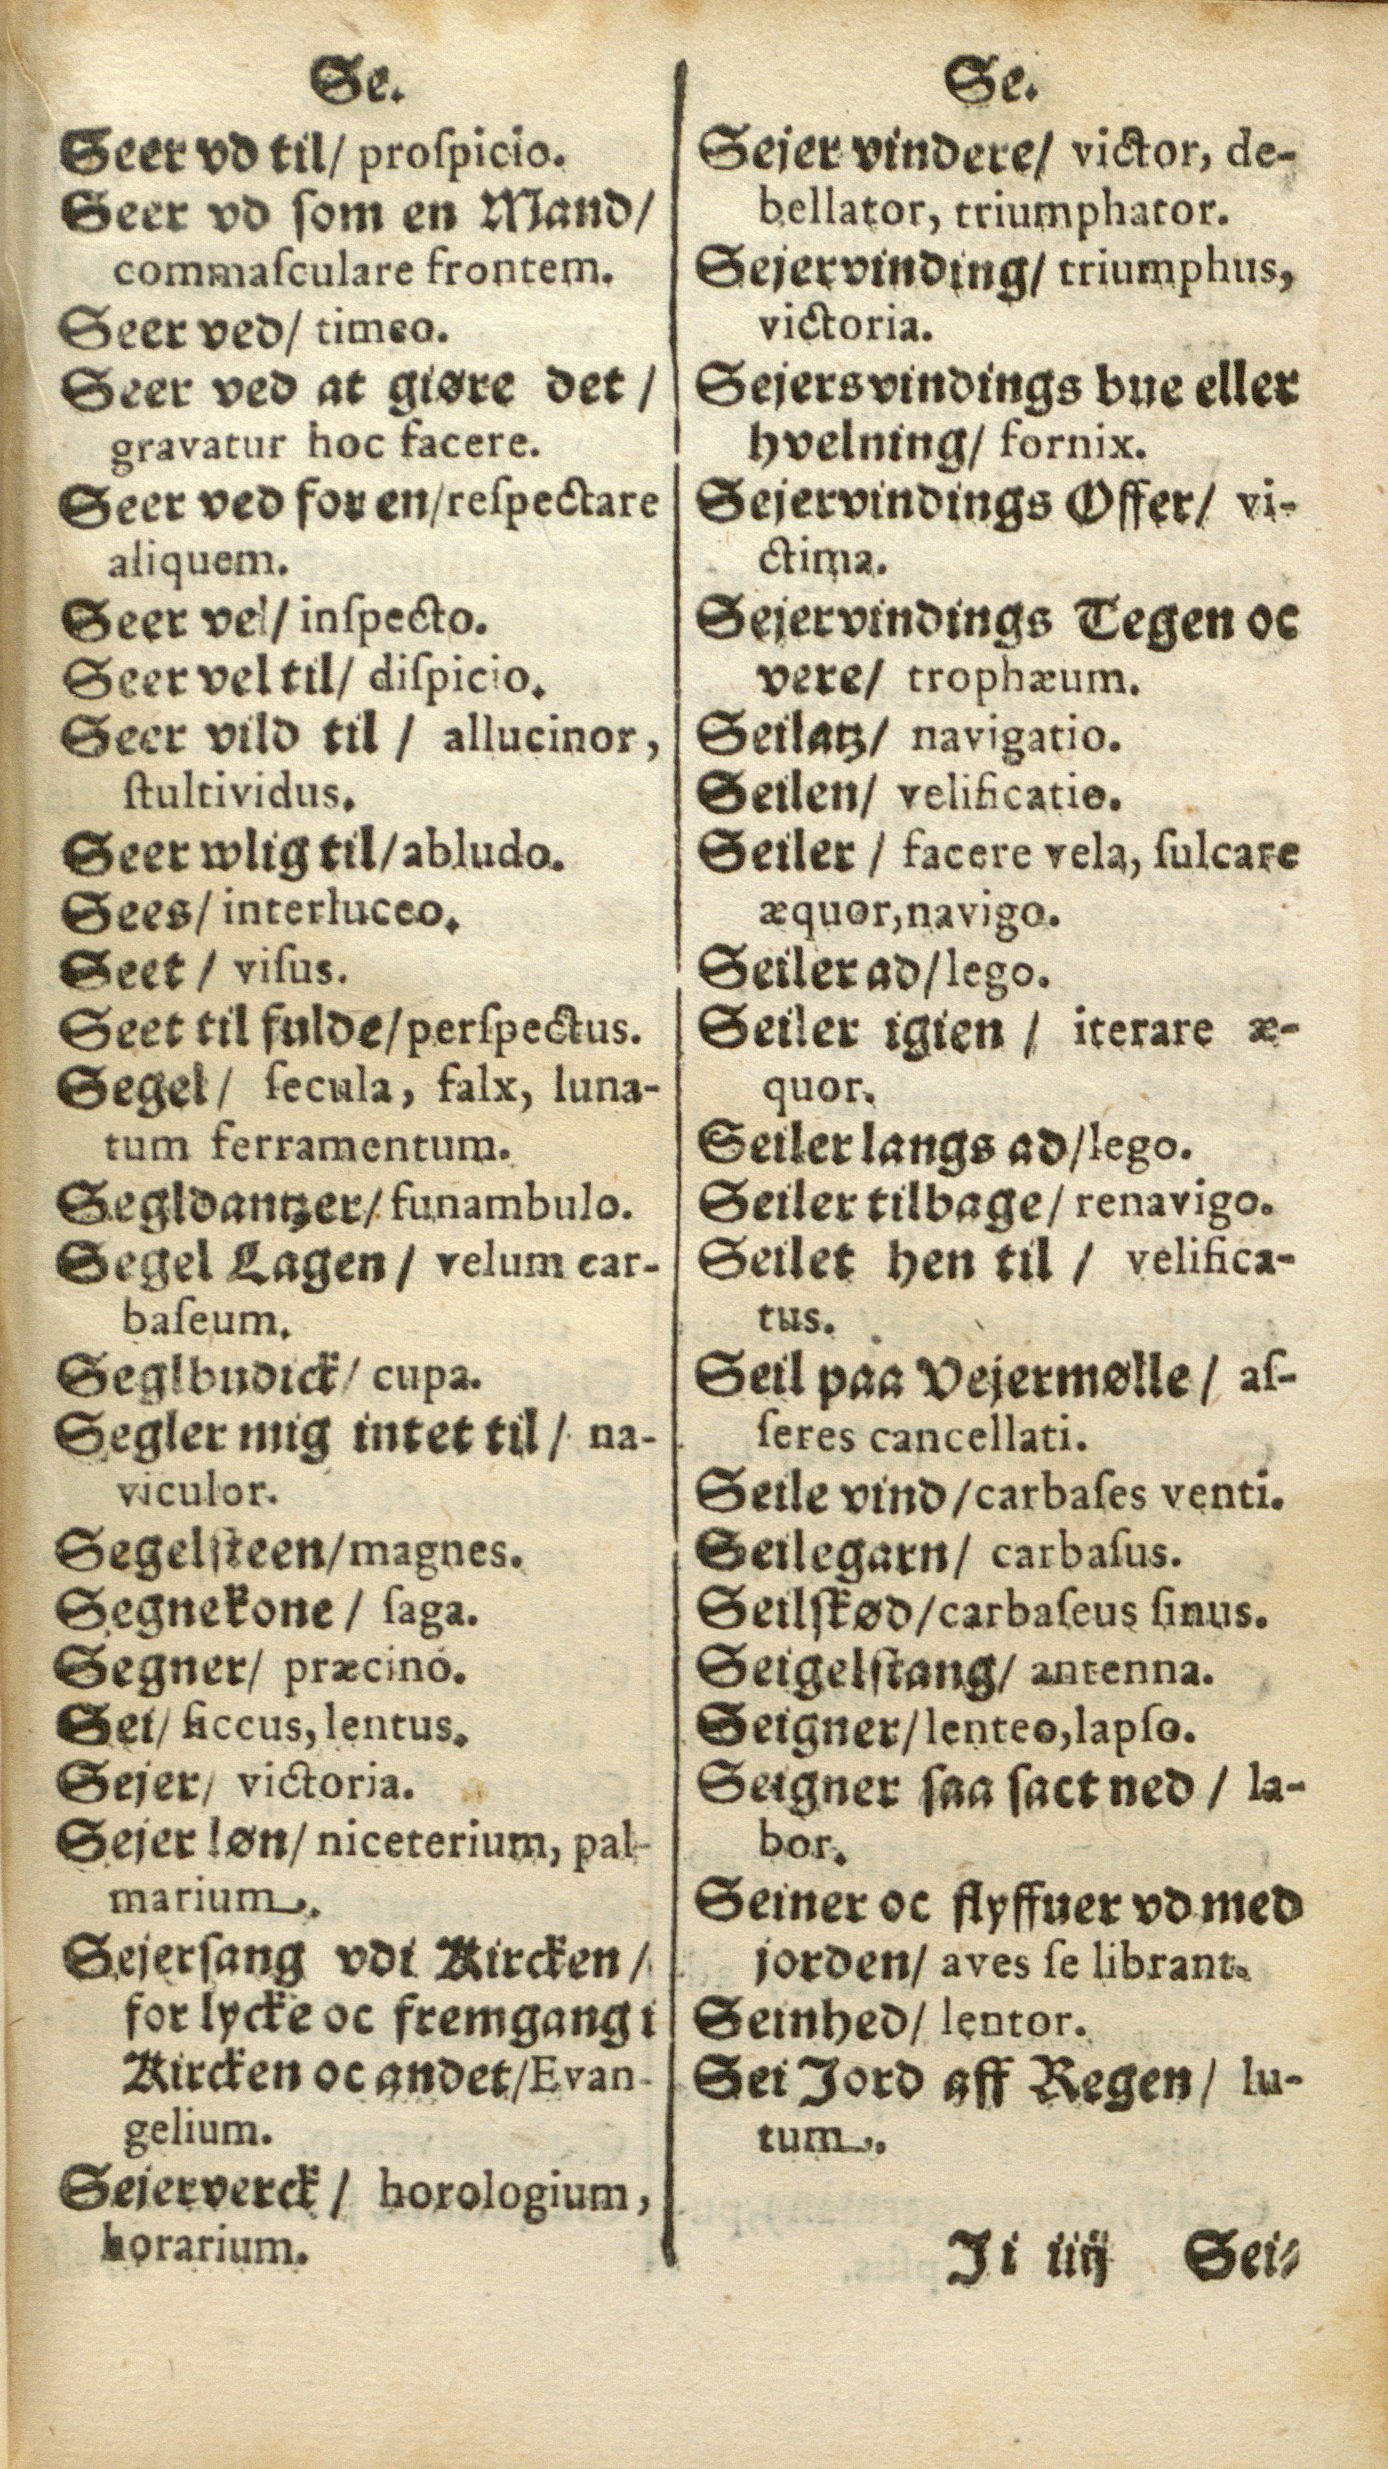 Se.
Seer vd til/ proſpicio.
Seer vd ſom en Mand/
commaſculare frontem.
Seer ved/ timeo.
Seer ved at giøre det /
gravatur hoc facere.
Seer ved for en/reſpectare
aliquem.
Seer vel/ inſpecto.
Seer vel til/ diſpicio.
Seer vild til / allucinor,
ſtultividus.
Seer wlig til/abludo.
Sees/ interluceo.
Seet / viſus.
Seet til fulde/perſpectus.
Segel/ ſecula, falx, luna-
tum ferramentum.
Segldantzer/ funambulo.
Segel Lagen / velum car-
baſeum.
Seglbudick/ cupa.
Segler mig intet til / na-
viculor.
Segelſteen/magnes.
Segnekone / ſaga.
Segner/ præcino.
Sei/ ſiccus, lentus.
Sejer/ victoria.
Sejer løn/ niceterium, pal-
marium.
Sejerſang vdi Kircken /
for lycke oc fremgang i
Kircken oc andet/Evan-
gelium.
Seierverck / horologium,
horarium.
Se.
Sejer vindere/ victor, de-
bellator, triumphator.
Sejervinding/ triumphus,
victoria.
Sejersvindings bue eller
hvelning/ fornix.
Sejervindings Offer/ vi-
ctima.
Sejervindings Tegen oc
vere/ trophæum.
Seilatz/ navigatio.
Seilen/ velificatio.
Seiler / facere vela, ſulcare
æquor,navigo.
Seiler ad/lego.
Seiler igien / iterare æ-
quor.
Seiler langs ad/lego.
Seiler tilbage/ renavigo.
Seilet hen til / velifica-
tus.
Seil paa Vejermølle / aſ-
ſeres cancellati.
Seile vind /carbaſes venti.
Seilegarn/ carbaſus.
Seilſkød/carbaſeus ſinus.
Seigelſtang/ antenna.
Seigner/lenteo,lapſo.
Seigner ſaa ſact ned / la-
bor.
Seiner oc flyffuer vd med
jorden/ aves ſe librant.
Seinhed/ lentor.
Sei Jord aff Regen/ lu-
tum.
Ji iiij Sei-